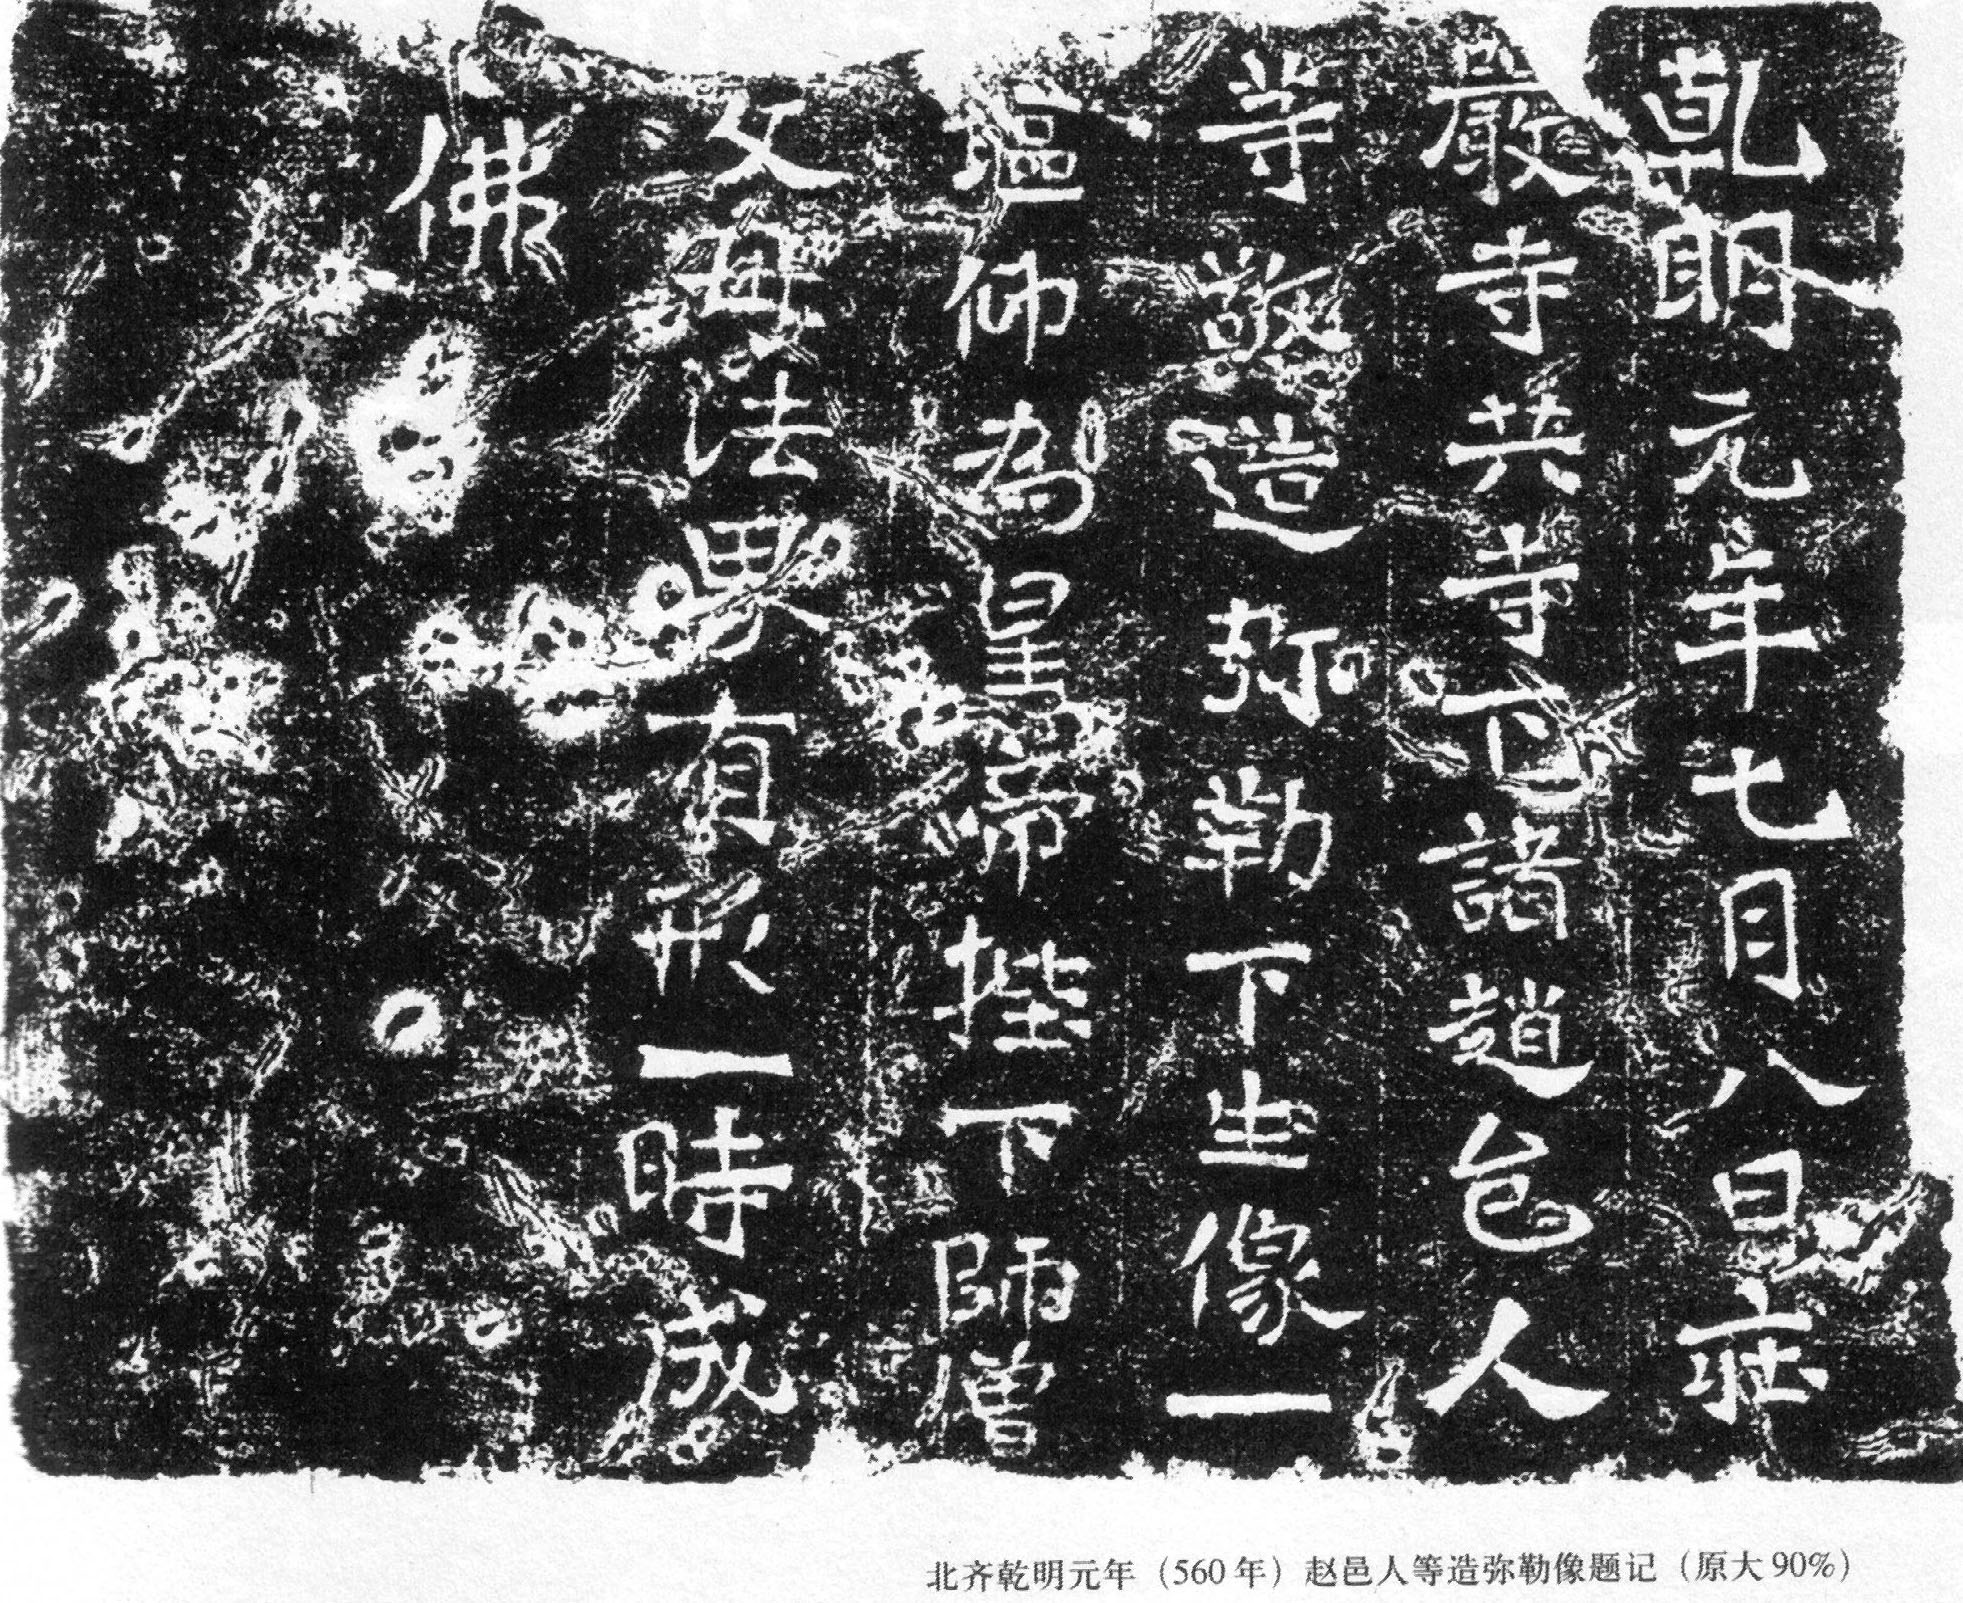 乾明元年七月八日莊
嚴寺共寺下諸趙邑人
等敬造弥勒下生像一
區仰為皇帝陛下師僧
父母法界有形一時成
佛
北齐乾明元年（560年）赵邑人等造弥勒像题记（原大90%）